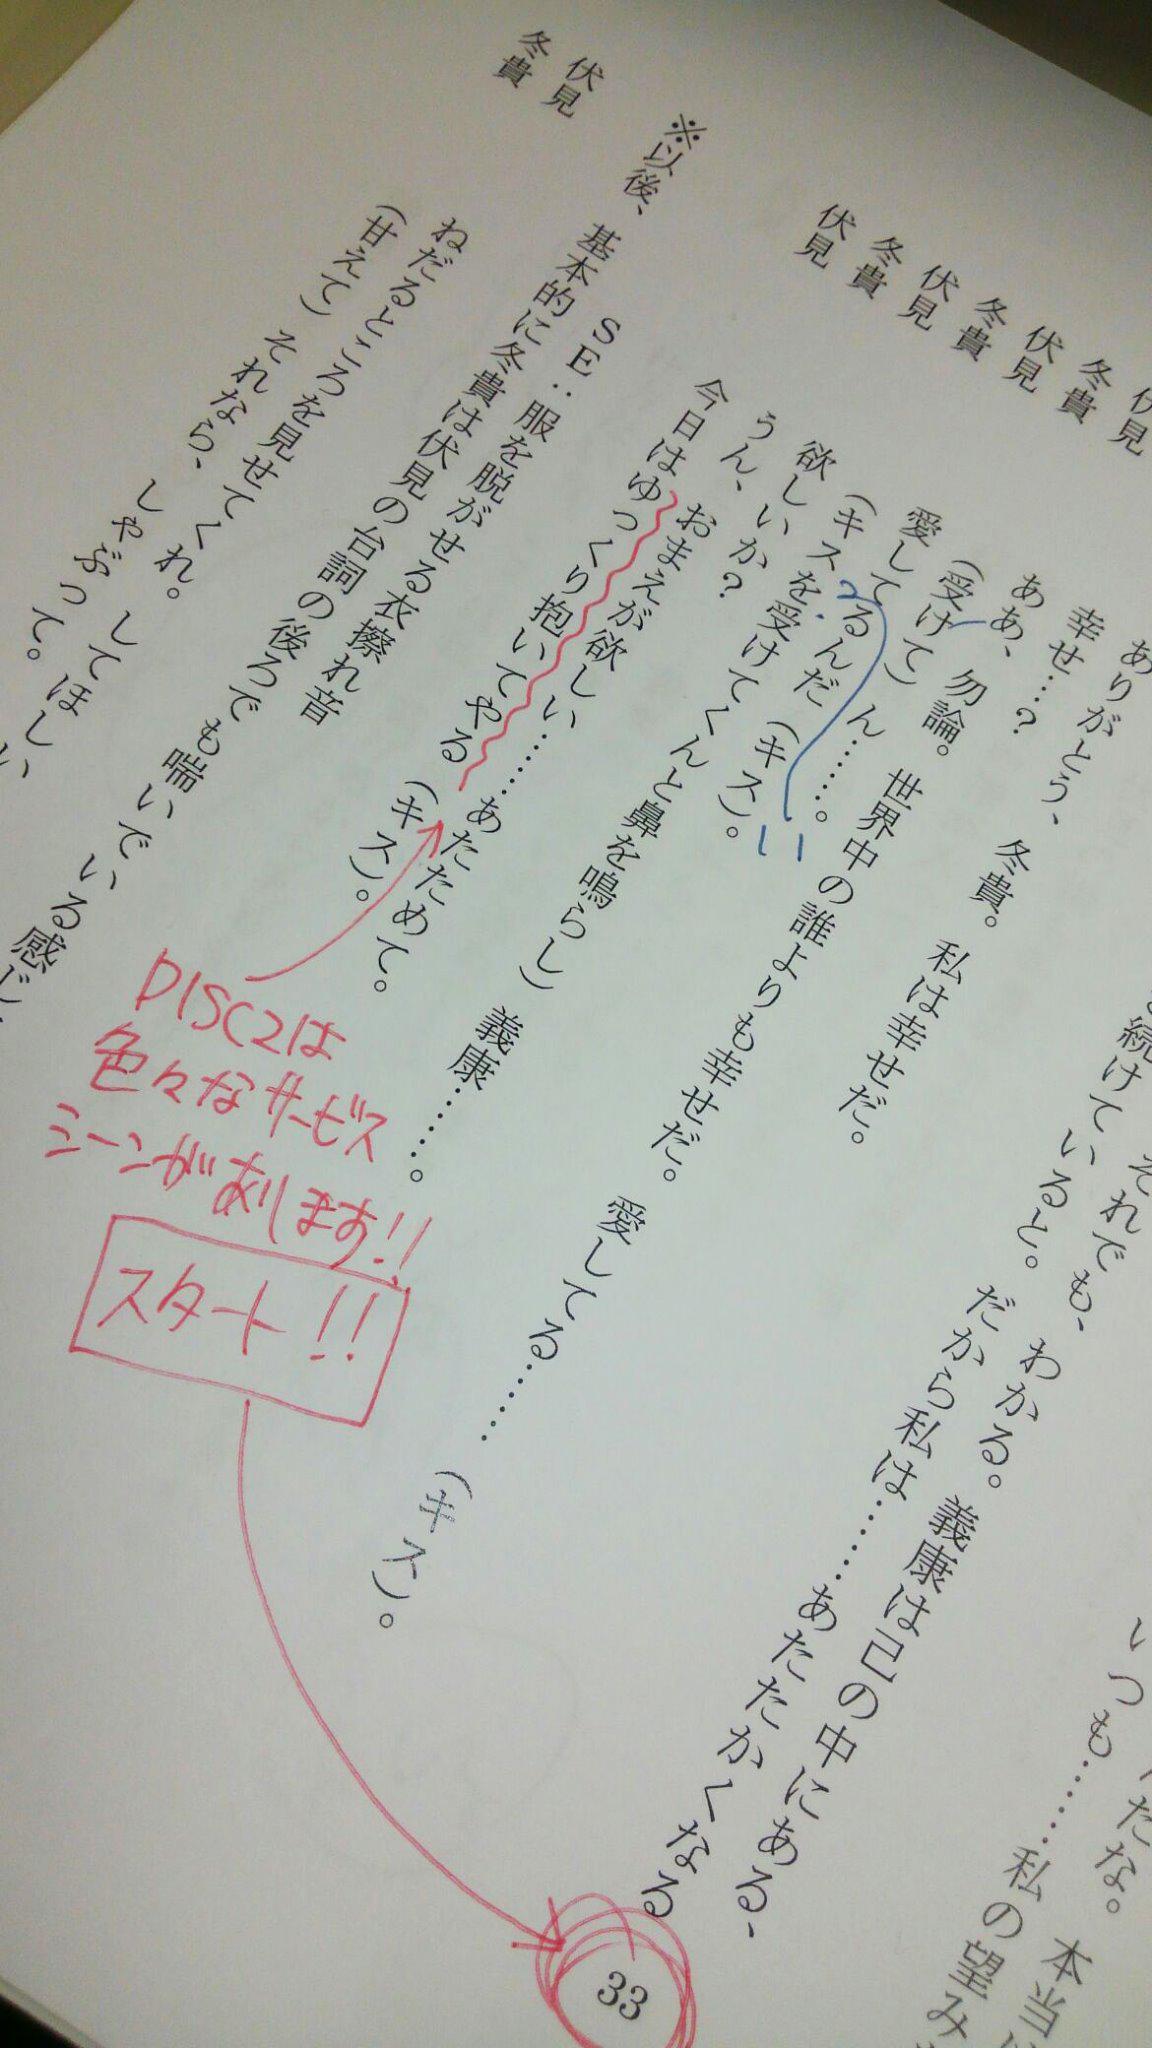 いつも……私の望み
本当
それでも、わかる。義康は己の中にある、
続けていると。だから私は……あたたかくなる
ありがとう、冬貴。私は幸せだ。
幸せ…？
伏見 ああ、勿論。世界中の誰よりも幸せだ。愛してる……（キス）。
冬貴 （受けて）ん……。
伏見 愛してるんだ（キス）。
冬貴 （キスを受けてくんと鼻を鳴らし）義康……。
伏見 欲しいか？
冬貴 うん、おまえが欲しい……あたためて。
伏見 今日はゆっくり抱いてやる（キス）。
SE：服を脱がせる衣擦れ音
※以後、基本的に冬貴は伏見の台詞の後ろでも喘いでいる感じ
伏見 ねだるところを見せてくれ。してほしい
冬貴 （甘えて）それなら、しゃぶって。
DISC2は
色々なサービス
シーンがあります!!
スタート!!
33